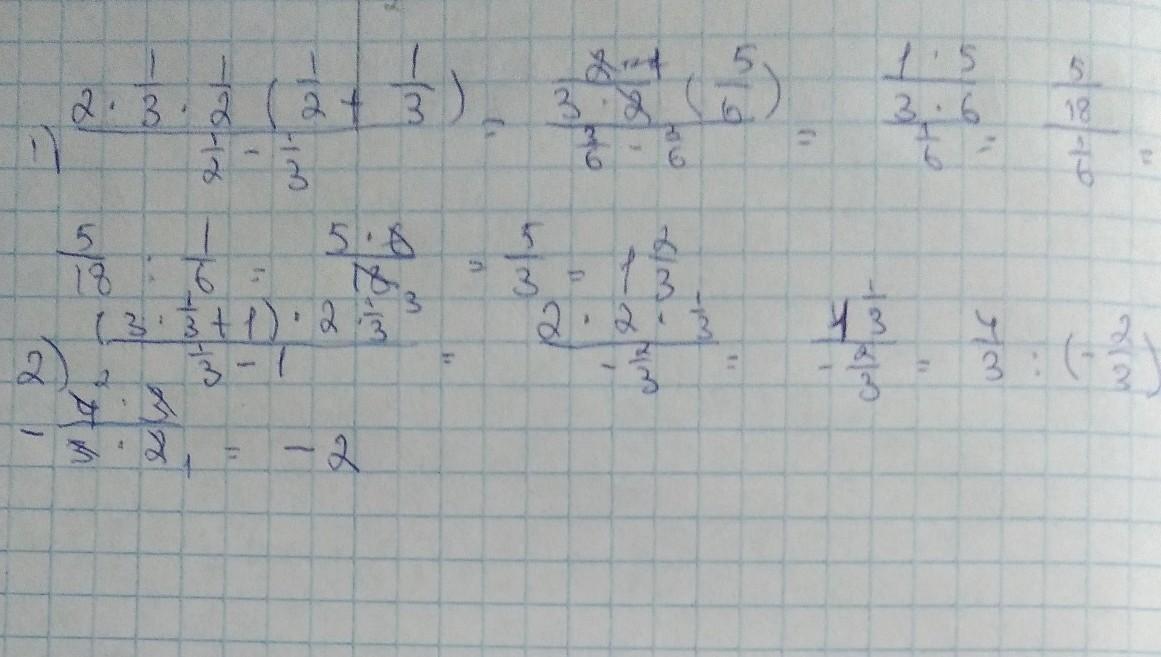 1) (2 · 1/3 · 1/2 (1/2 + 1/3)) / (1/2 - 1/3) = ((2 · 1)/(3 · 2) (5/6)) / (3/6 - 2/6) = ((1 · 5)/(3 · 6)) / (1/6) = (5/18) / (1/6) =
5/18 : 1/6 = (5 · 6)/18 3 = 5/3 = 1 2/3
2) ((3 · 1/3 + 1) · 2 · 1/3) / (1/3 - 1) = (2 · 2 · 1/3) / (- 2/3) = (4 1/3) / (- 2/3) = 4/3 : (- 2/3)
- (4 2 · 3)/(3 · 2 1) = - 2